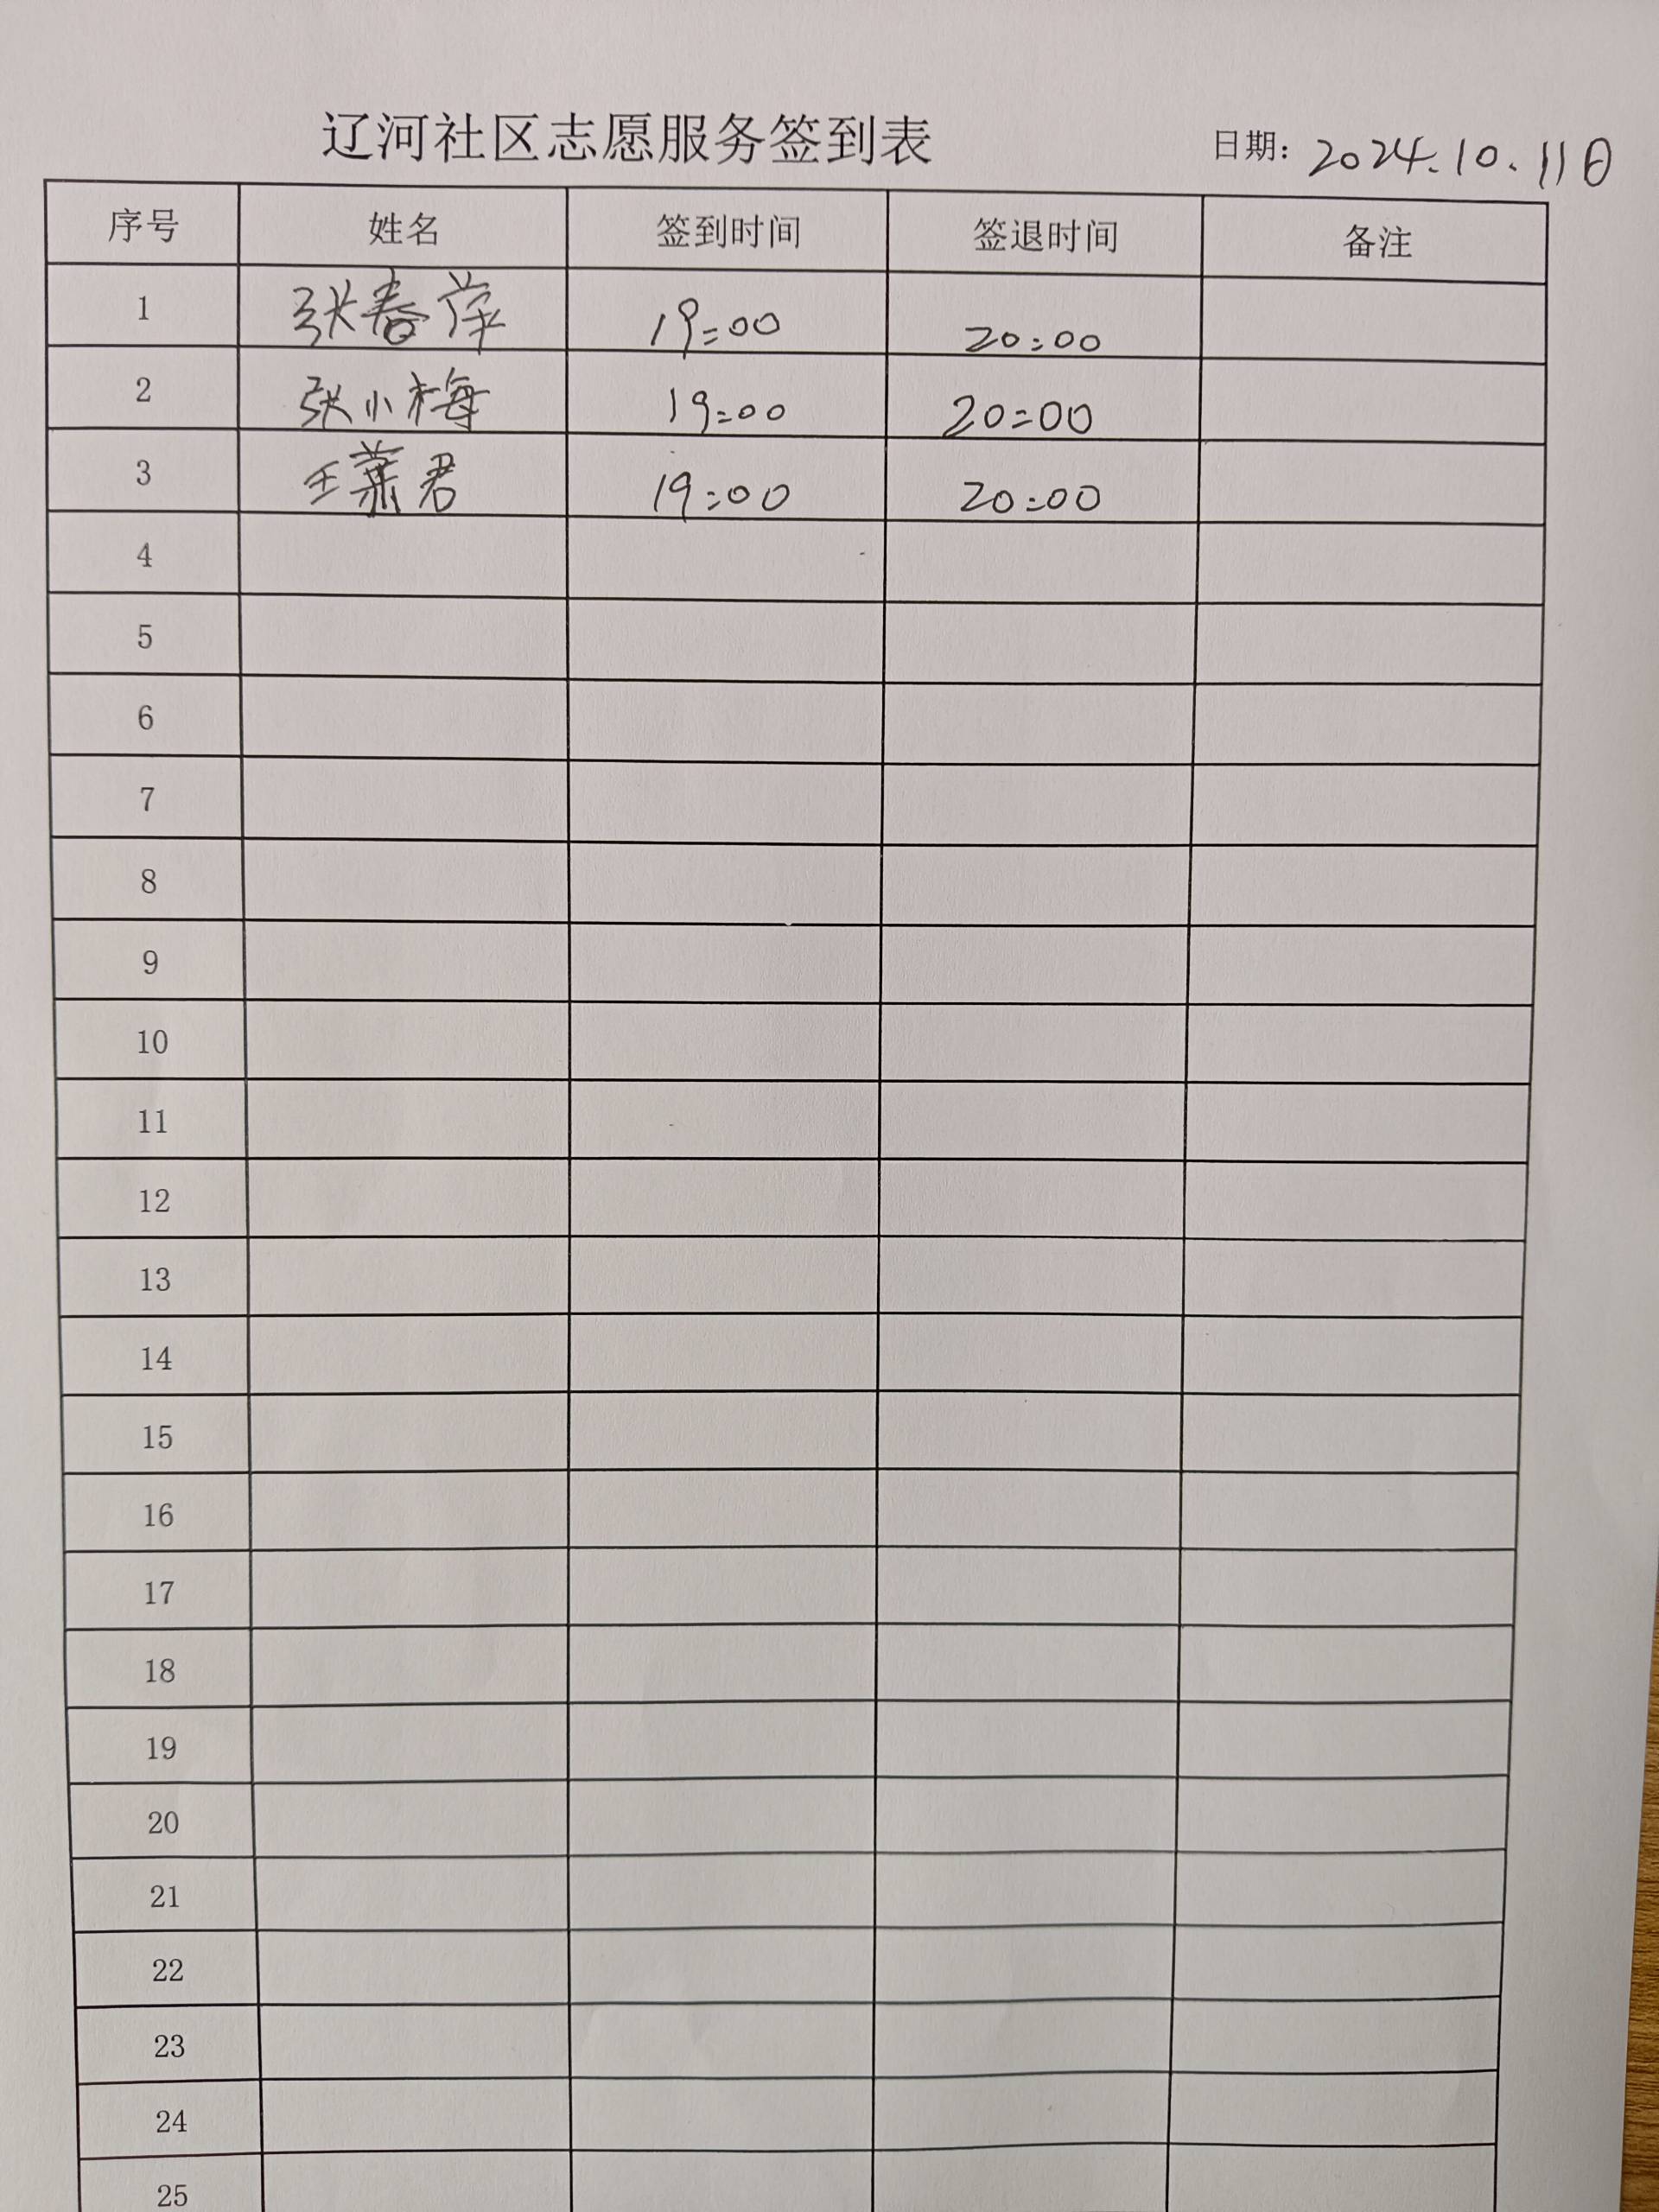 辽河社区志愿服务签到表 日期: 2024.10.11日
序号 姓名 签到时间 签退时间 备注
1 张春萍 19:00 20:00
2 张小梅 19:00 20:00
3 王 君 19:00 20:00
4
5
6
7
8
9
10
11
12
13
14
15
16
17
18
19
20
21
22
23
24
25